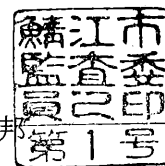 鯖江市
監査委
員之印
第1号
邦